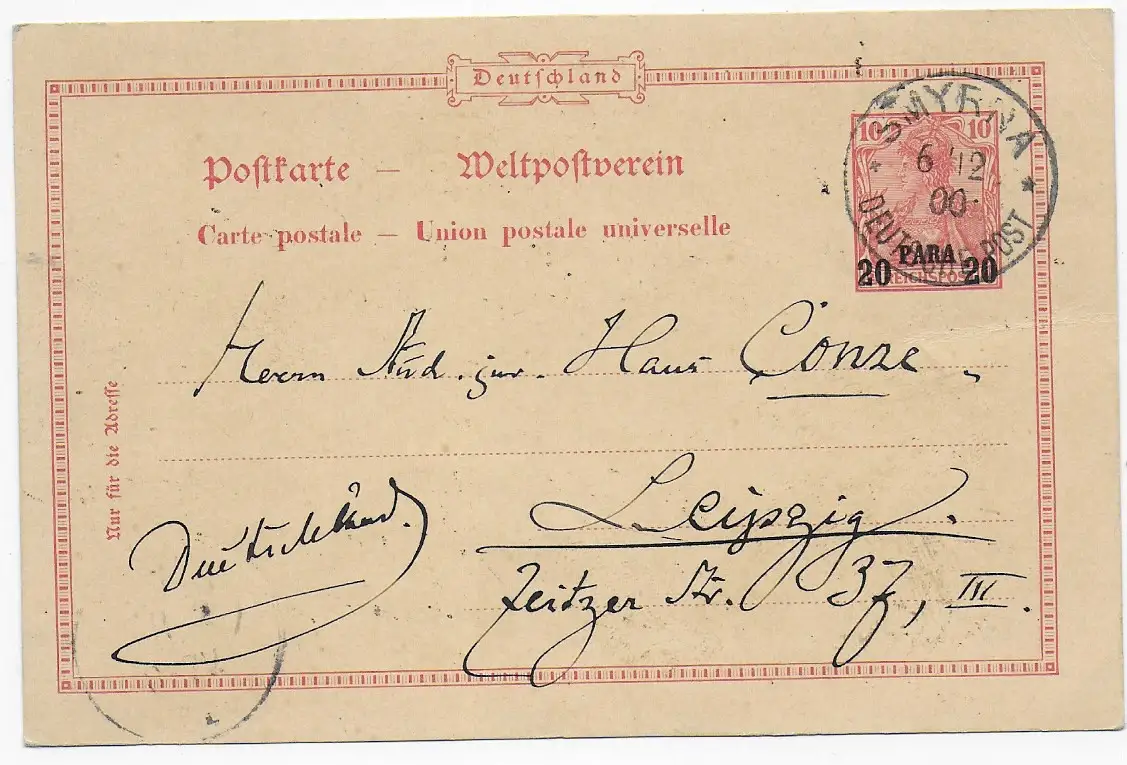 Deutschland
Postkarte — Weltpostverein
Carte postale — Union postale universelle
10 10
PARA
20 20
REICHSPOST
SMYRNA
6 12
00
DEUTSCHE POST
Nur für die Adresse
Herrn stud. jur. Hans Conze
Leipzig.
Zeitzer Str. 37, III.
Deutschland.